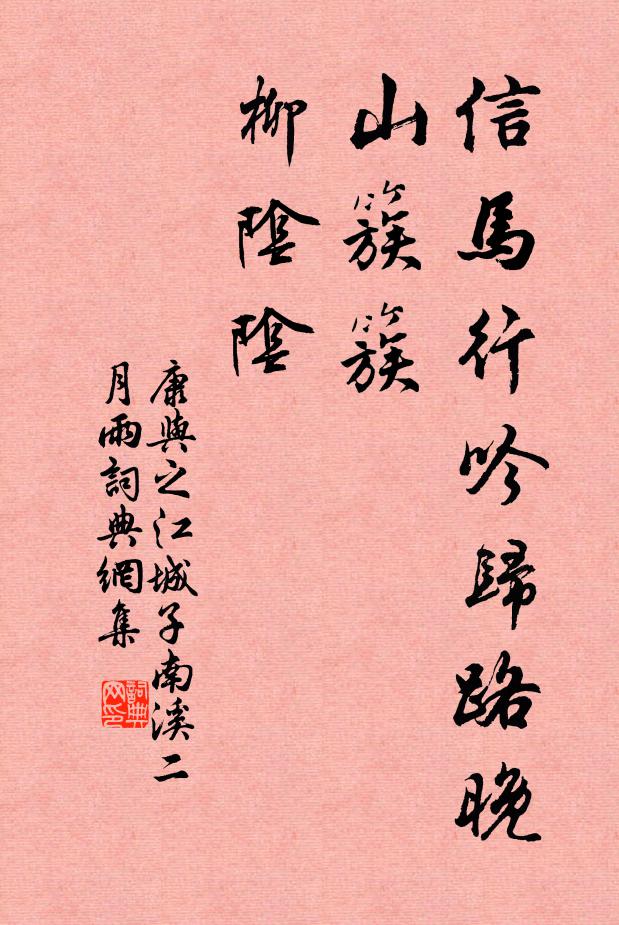 信馬行吟歸路晚
山簇簇
柳陰陰
康與之江城子南溪二
月雨詞典網集
詞典
网印